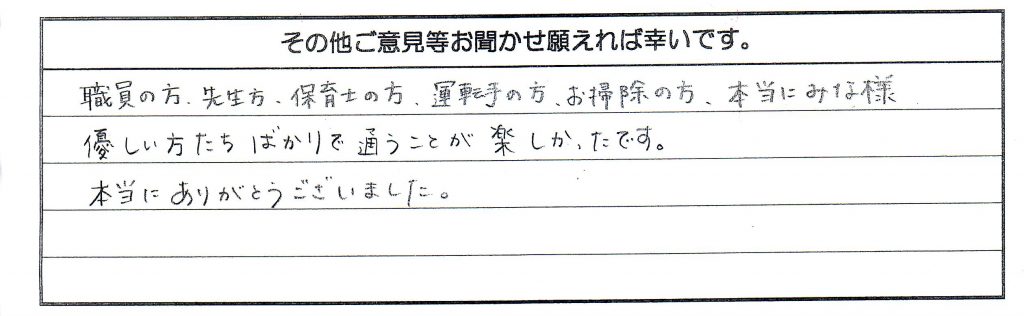 その他ご意見等お聞かせ願えれば幸いです。
職員の方、先生方、保育士の方、運転手の方、お掃除の方、本当にみな様
優しい方たちばかりで通うことが楽しかったです。
本当にありがとうございました。